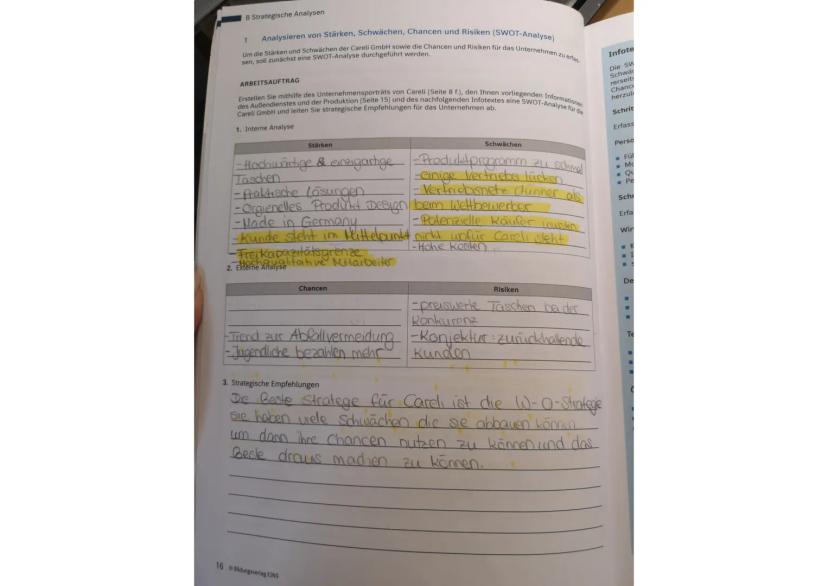 B Strategische Analysen
1 Analysieren von Stärken, Schwächen, Chancen und Risiken (SWOT-Analyse)
Um die Stärken und Schwächen der Careli GmbH sowie die Chancen und Risiken für das Unternehmen zu erfas-
sen, soll zunächst eine SWOT-Analyse durchgeführt werden.
ARBEITSAUFTRAG
Erstellen Sie mithilfe des Unternehmensporträts von Careli (Seite 8 f.), den Ihnen vorliegenden Informationen
des Außendienstes und der Produktion (Seite 15) und des nachfolgenden Infotextes eine SWOT-Analyse für die
Careli GmbH und leiten Sie strategische Empfehlungen für das Unternehmen ab.
1. Interne Analyse
Stärken
-Hochwürtige & einzigartige
Taschen
-Praktische Lösungen
-Orgienelles Produkt Design
-Made in Germany
-Kunde steht im Mittelpunkt
-Freikapazitätsgrenze
-Hochqualitative Mitarbeiter
Schwächen
-Produktprogramm zu schmal
-einige Vertriebs lücken
-Vertriebsnetz dünner als
beim Wettbewerber
-Potenzielle Käufer wissen
nicht wofür Careli steht
-Hohe Kosten
2. Externe Analyse
Chancen
-Trend zur Abfallvermeidung
-Jugendliche bezahlen mehr
Risiken
-preiswerte Taschen bei der
Konkurenz
-Konjektur: zurückhaltende
Kunden
3. Strategische Empfehlungen
Die Beste Stratege für Careli ist die W-O-Stratege
sie haben viele Schwächen die sie abbauen können
um dann ihre Chancen nutzen zu können und das
Beste draus machen zu können.
16 © Bildungsverlag EINS
Infote
Die SW
Schwä
rerseit
Chanc
herzul
Schrit
Erfass
Perso
Fül
Mo
Qu
Pe
Schr
Erfa
Wir
De
Te